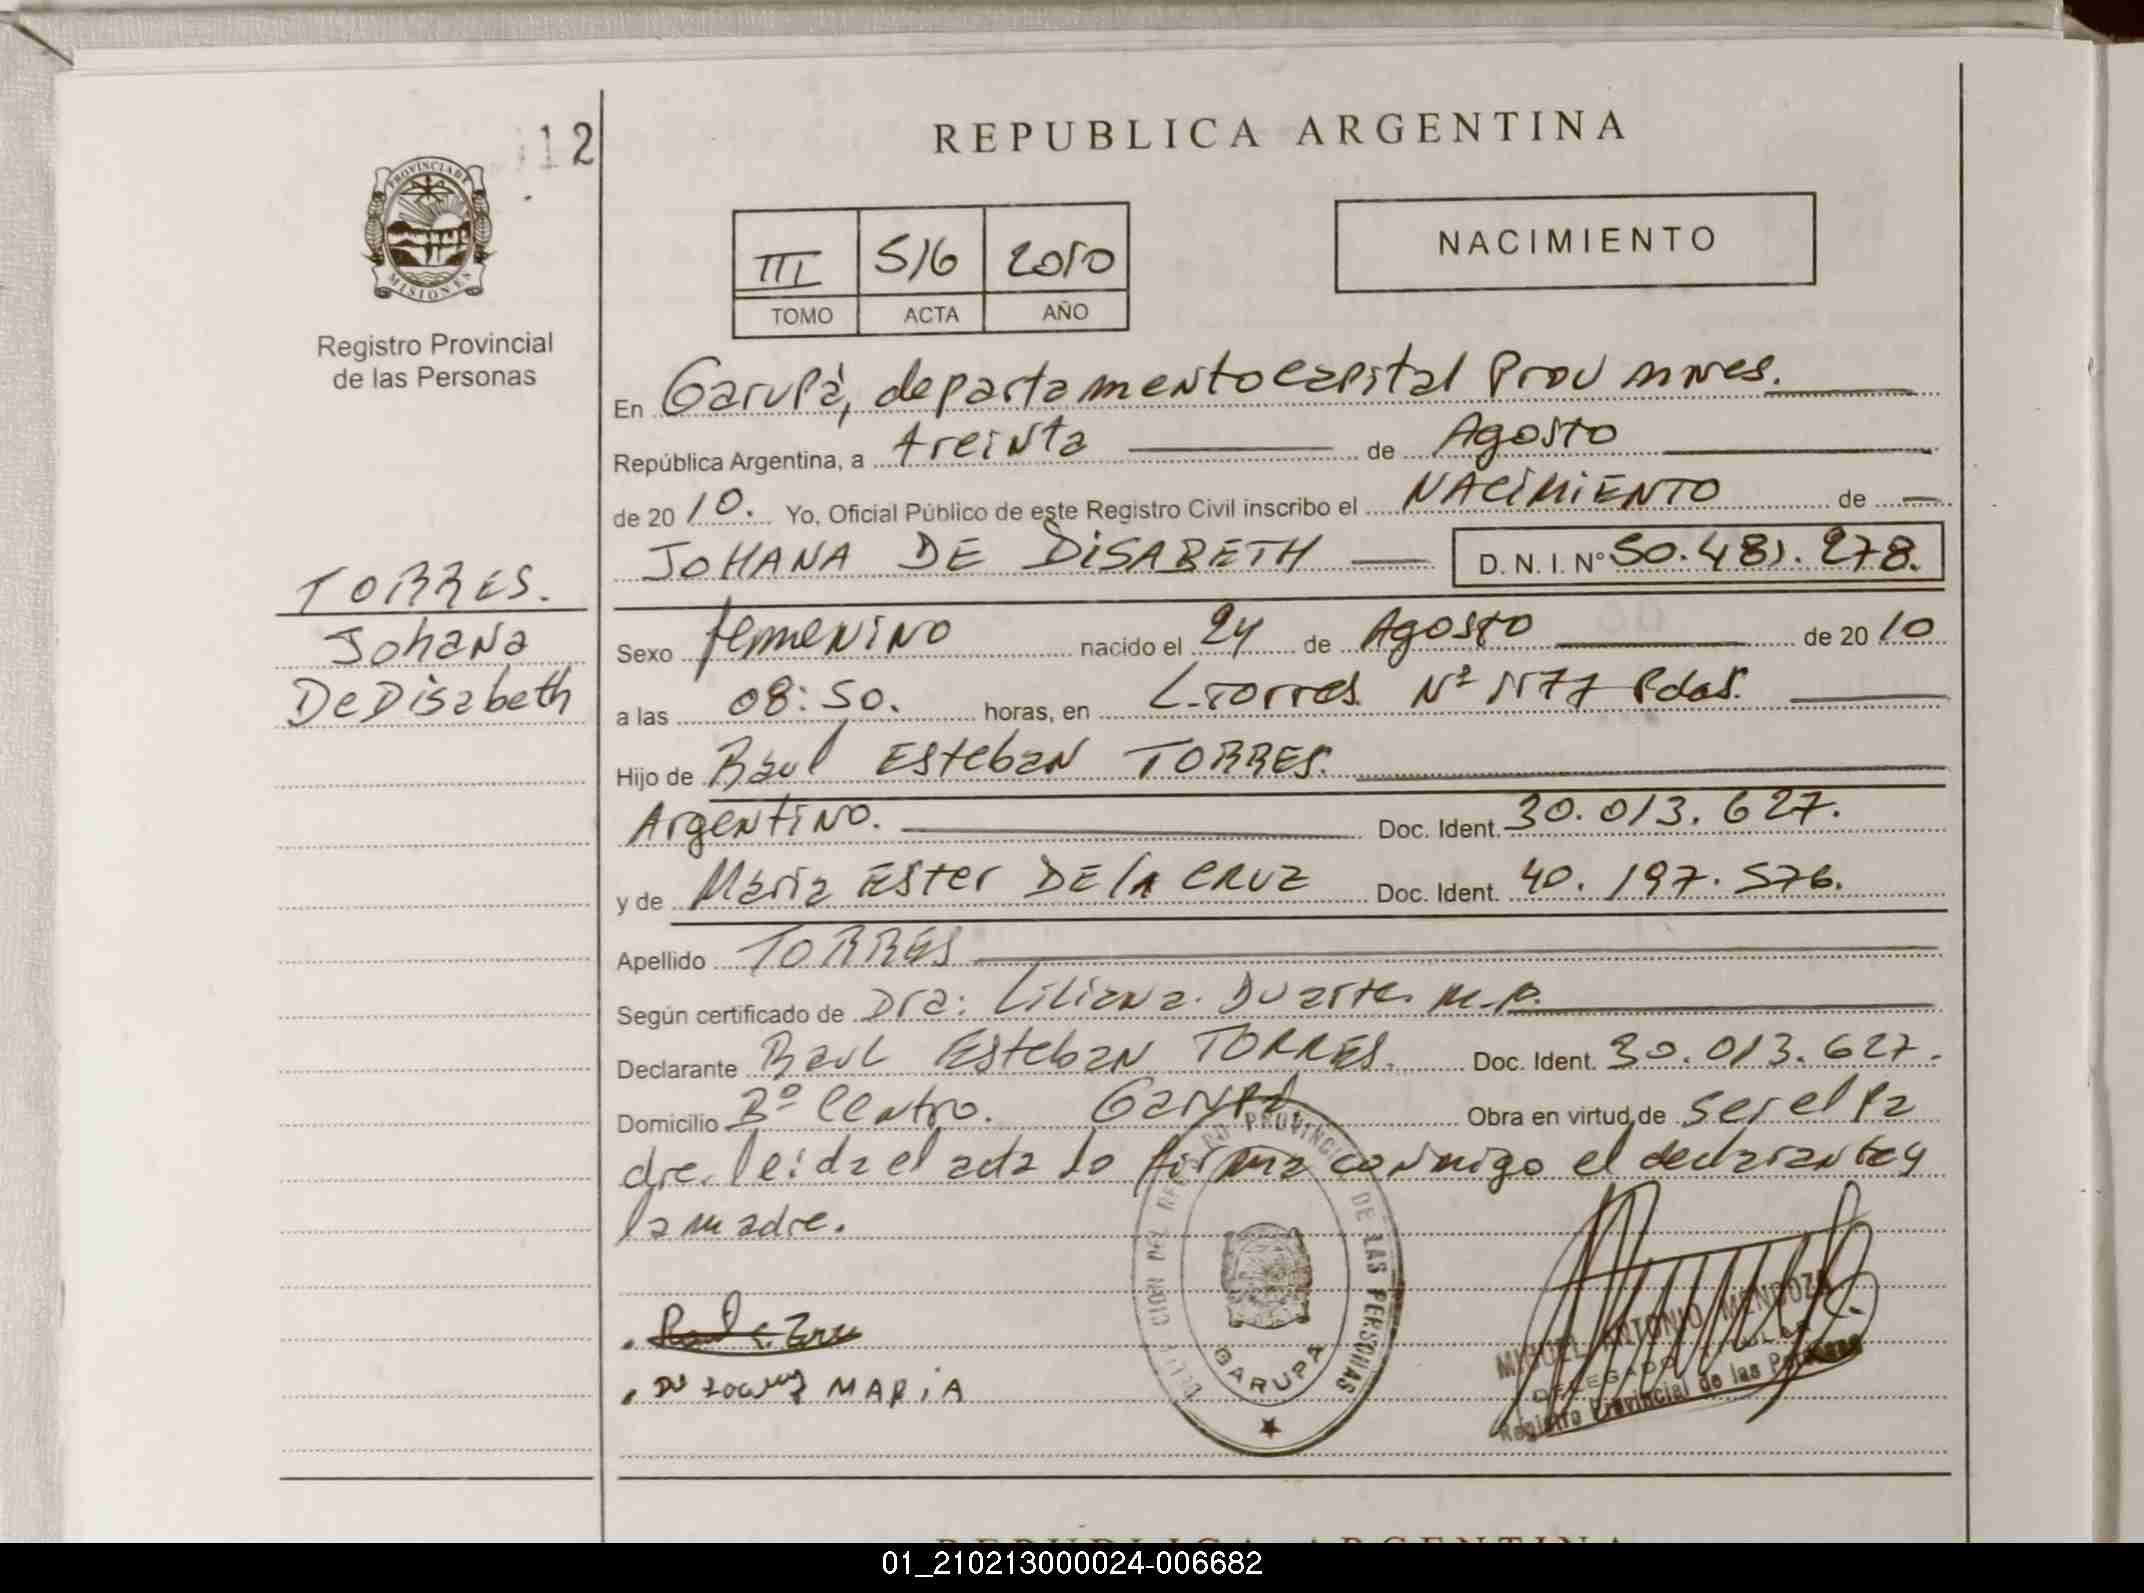 12
REPUBLICA ARGENTINA
PROVINCIA DE
MISIONES
Registro Provincial
de las Personas
III 516 2010
TOMO ACTA AÑO
NACIMIENTO
En Garupá, departamento capital Prov mnes.
República Argentina, a treinta de Agosto
de 20 10. Yo, Oficial Público de este Registro Civil inscribo el NACIMIENTO de
JOHANA DE DISABETH D. N. I. N° 50.481.278.
TORRES.
Johana
De Disabeth
Sexo femenino nacido el 24 de Agosto de 20 10
a las 08:50. horas, en L. Torres Nº 1177 Pdas.
Hijo de Raul Esteban TORRES.
Argentino. Doc. Ident. 30.013.627.
y de Maria Ester DE la CRUZ Doc. Ident. 40.197.576.
Apellido TORRES
Según certificado de Dra: Liliana Duarte. m.p.
Declarante Raul Esteban TORRES. Doc. Ident. 30.013.627.
Domicilio Bº Centro. Garupá Obra en virtud de ser el pa
dre. leida el acta la firma conmigo el declarante y
la madre.
MARIA
REGISTRO PROVINCIAL DE LAS PERSONAS
GARUPA
MIGUEL ANTONIO MENDOZA
DELEGADO TITULAR
Registro Provincial de las Personas
REPUBLICA ARGENTINA
01_210213000024-006682